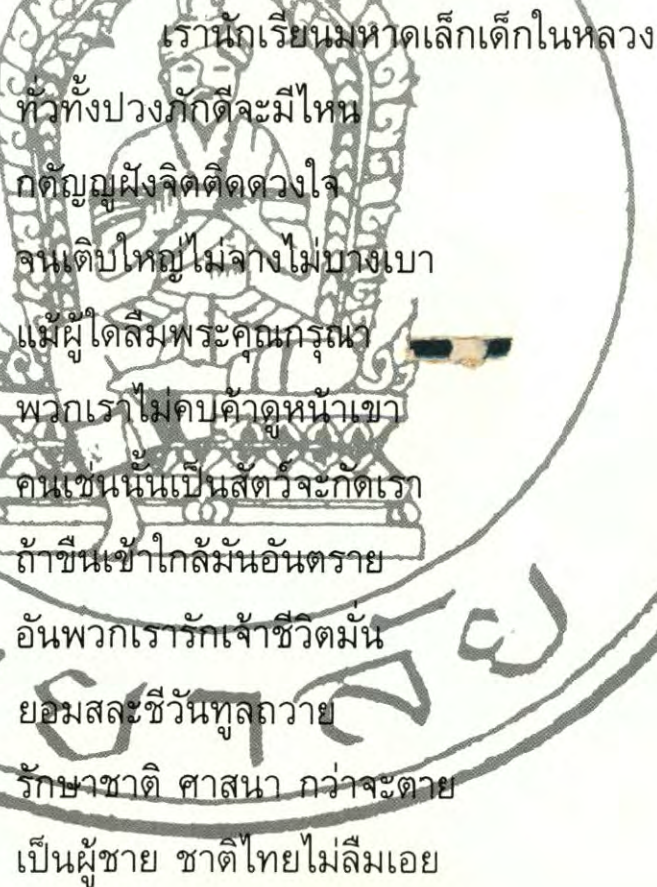 เรานักเรียนมหาดเล็กเด็กในหลวง
ทั่วทั้งปวงภักดีจะมีไหน
กตัญญูฝังจิตติดดวงใจ
จนเติบใหญ่ไม่จางไม่บางเบา
แม้ผู้ใดลืมพระคุณกรุณา
พวกเราไม่คบค้าดูหน้าเขา
คนเช่นนั้นเป็นสัตว์จะกัดเรา
ถ้าขืนเข้าใกล้มันอันตราย
อันพวกเรารักเจ้าชีวิตมั่น
ยอมสละชีวันทูลถวาย
รักษาชาติ ศาสนา กว่าจะตาย
เป็นผู้ชาย ชาติไทยไม่ลืมเอย
ยาลัย